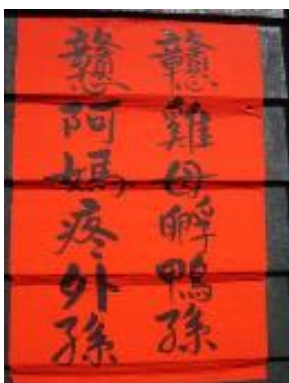 戇雞母孵鴨孫
戇阿媽疼外孫